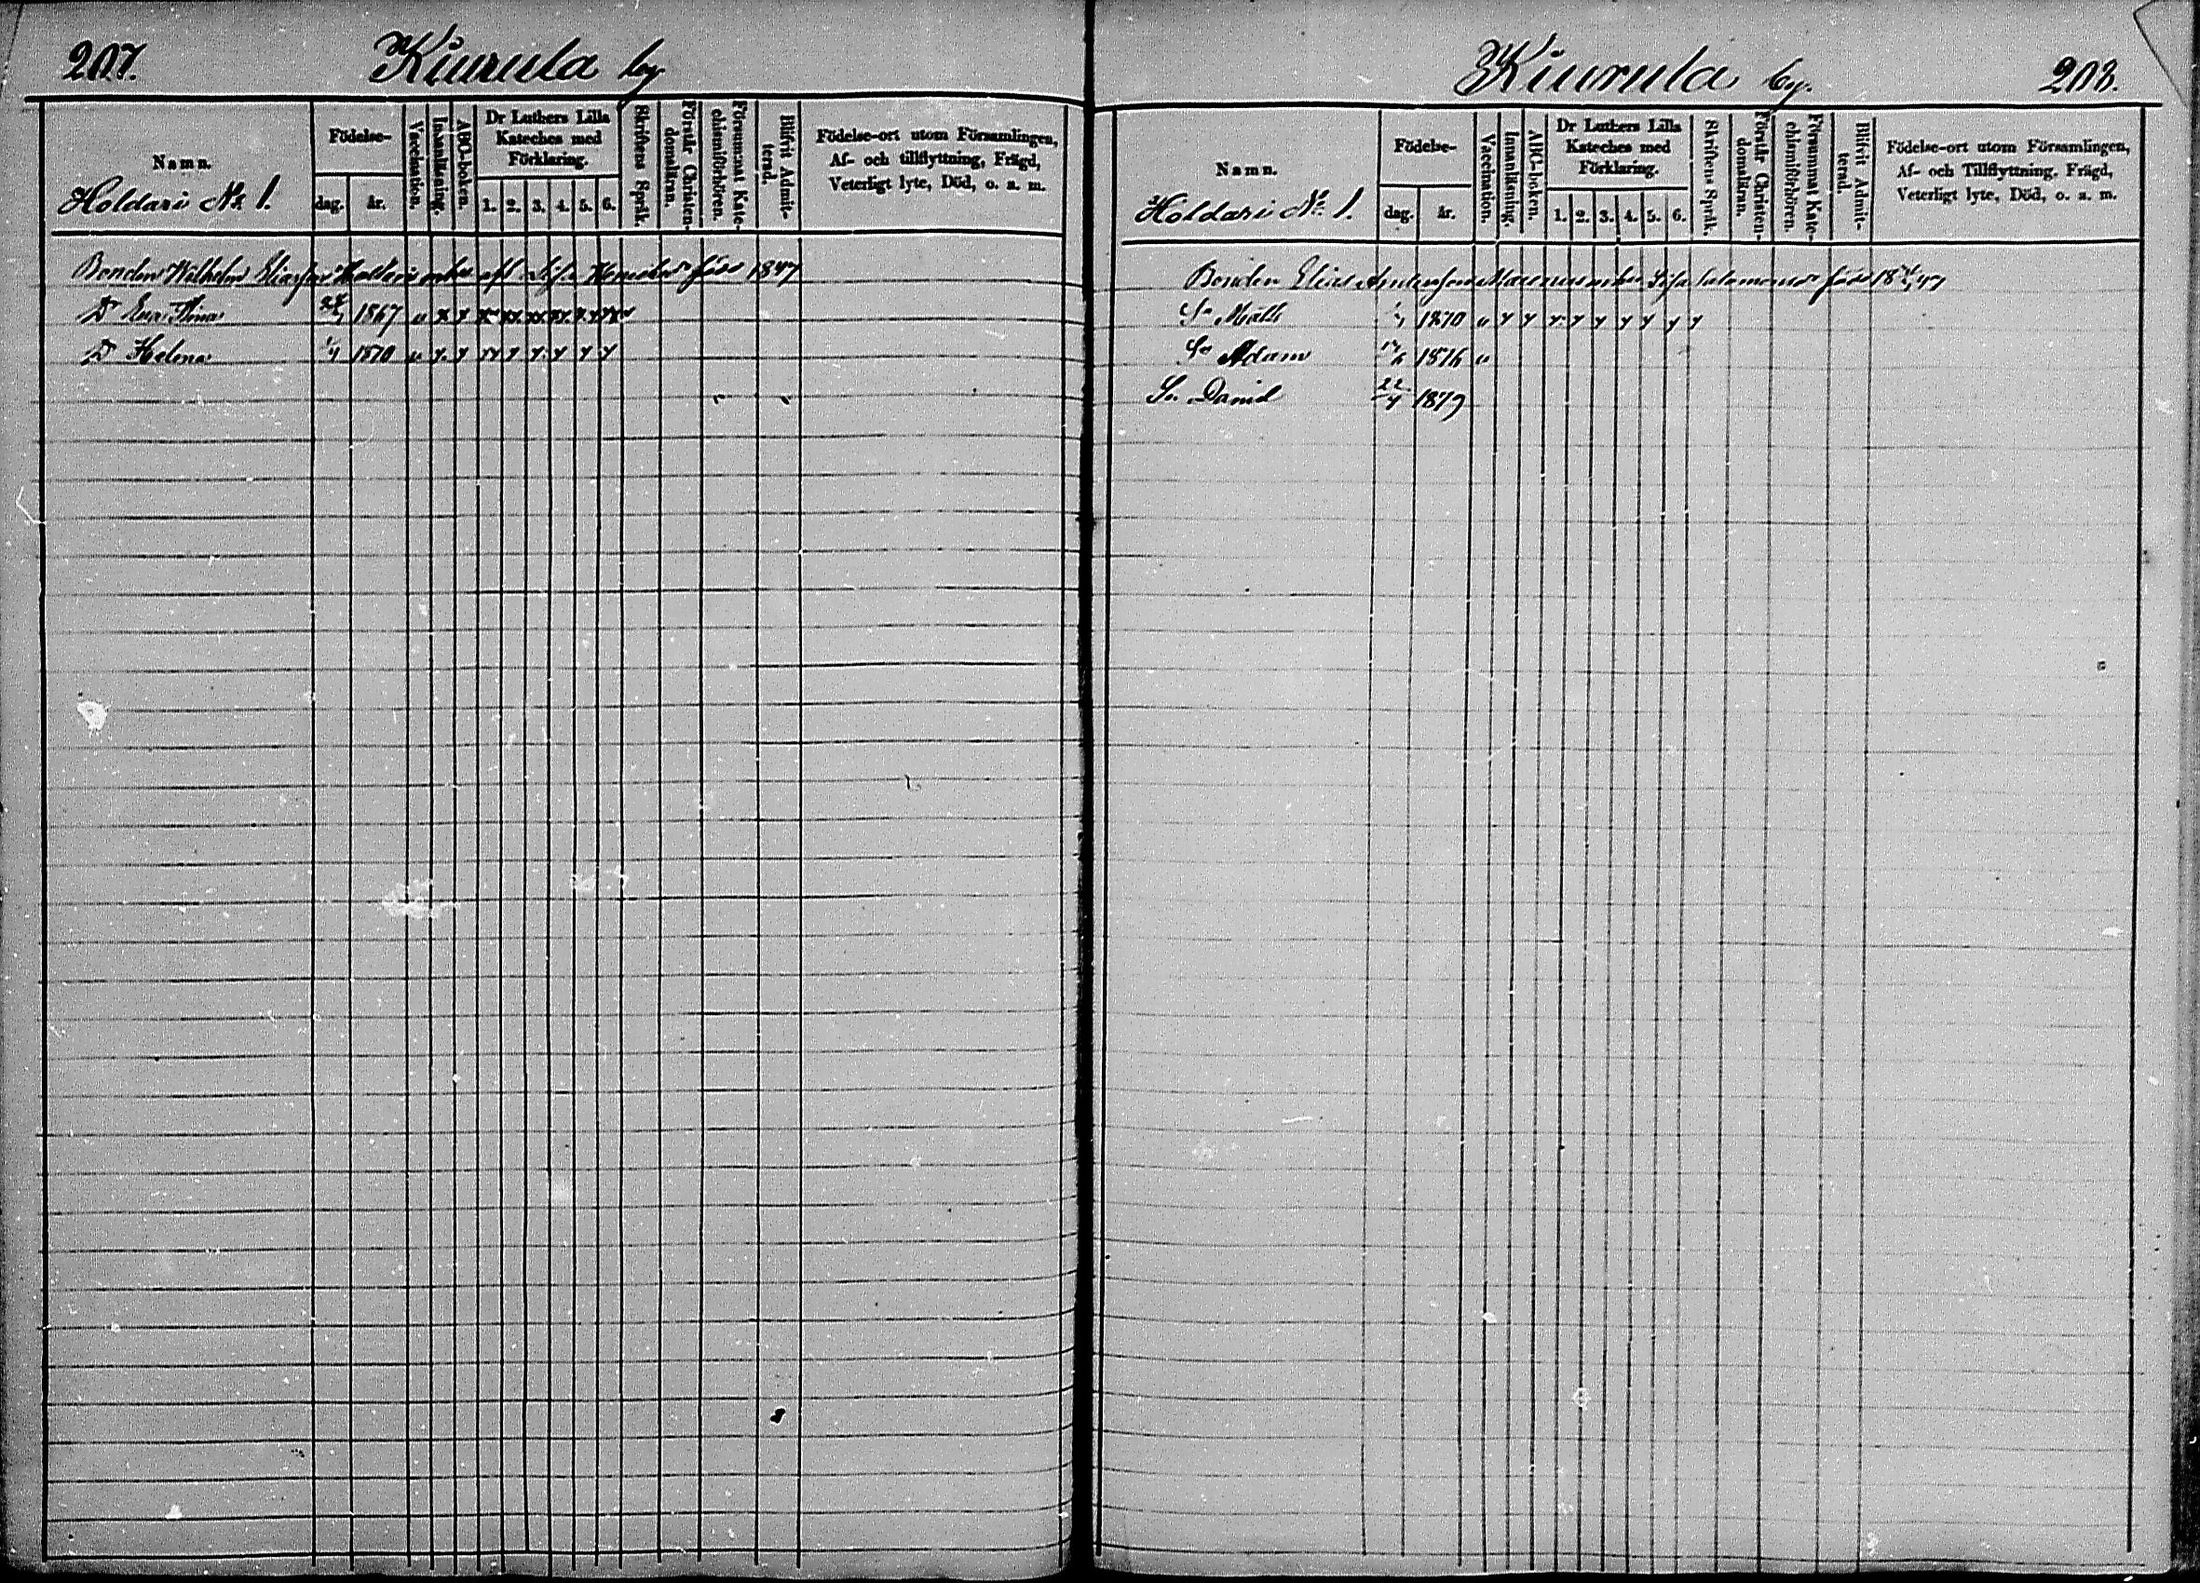 207. Kiurula by
Namn.
Holdari No 1.
Födelse-
dag. år.
Vaccination.
Innanläsning.
ABC-boken.
Dr Luthers Lilla
Kateches med
Förklaring.
1. 2. 3. 4. 5. 6.
Skriftens Språk.
Förstår Christen-
domsläran.
Försummat Kate-
chismiförhören.
Blifvit Admit-
terad.
Födelse-ort utom Församlingen,
Af- och tillflyttning, Frägd,
Veterligt lyte, Död, o. a. m.
Bonden Wilhelm Eliasson född 1847
D Eva Stina 1867 
D Helena 1/1 1870
Kiurula by. 208.
Namn.
Holdari No 1.
Födelse-
dag. år.
Vaccination.
Innanläsning.
ABC-boken.
Dr Luthers Lilla
Kateches med
Förklaring.
1. 2. 3. 4. 5. 6.
Skriftens Språk.
Förstår Christen-
domsläran.
Försummat Kate-
chismiförhören.
Blifvit Admit-
terad.
Födelse-ort utom Församlingen,
Af- och Tillflyttning, Frägd,
Veterligt lyte, Död, o. a. m.
Bonden Elias född
Sn Math 1870
Sn Adam 1876
Sn David 22/4 1879